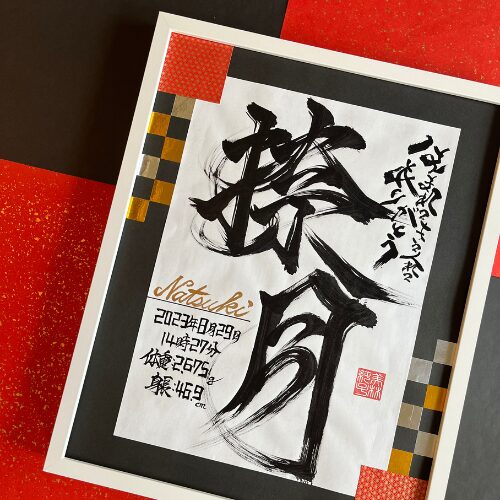 捺月
生まれてきてくれて
ありがとう
Natsuki
2023年8月29日
14時27分
体重:2675g
身長:46.9cm